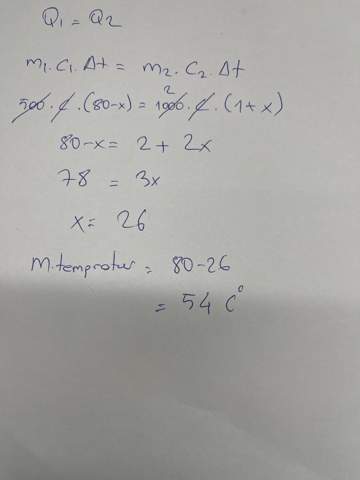 Q₁ = Q₂
m₁.c₁.Δt = m₂.c₂.Δt
500.c.(80-x) = 1000.c.(1+x)
2
80-x = 2 + 2x
78 = 3x
x = 26
M.temprotur = 80-26
= 54 C°